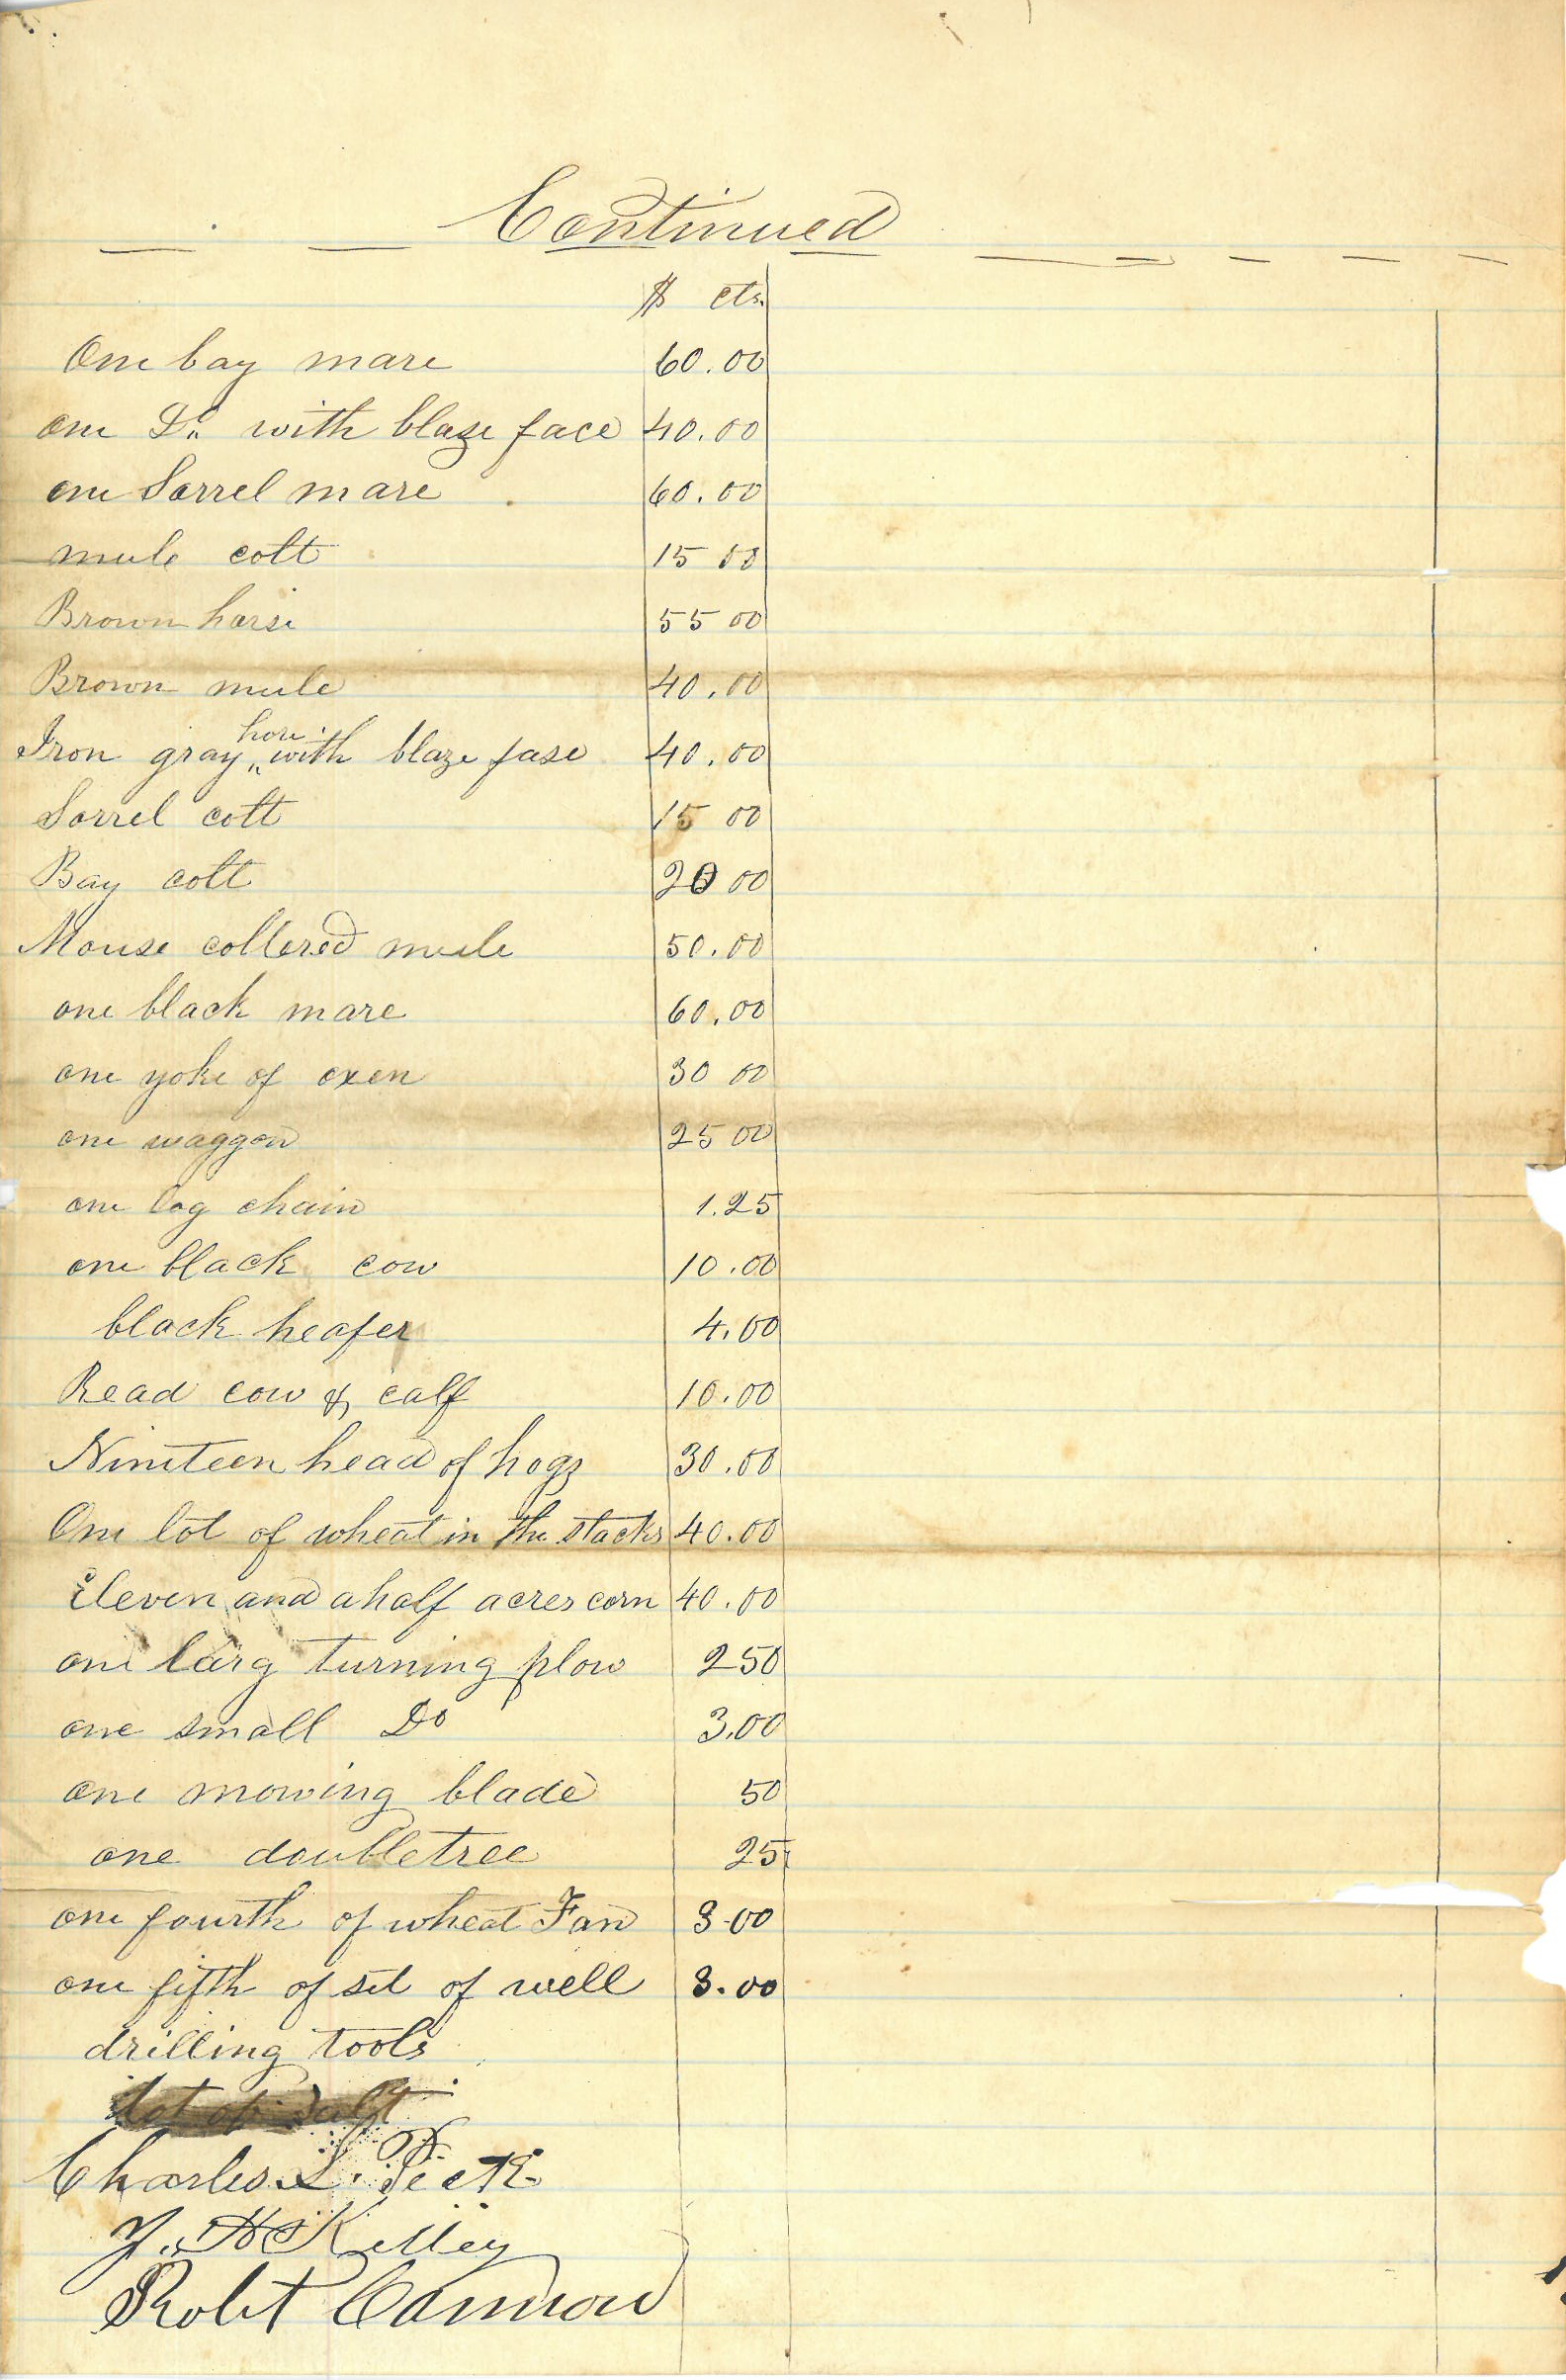 Continued
$ cts.
One bay mare 60.00
one Do. with blaze face 40.00
one Sorrel mare 60.00
mule colt 15 00
Brown horse 55 00
Brown mule 40.00
hors
Iron gray with blaze fase 40.00
Sorrel colt 15 00
Bay colt 20 00
Mouse collered mule 50.00
one black mare 60.00
one yoke of oxen 30 00
one waggon 25 00
one log chain 1.25
one black cow 10.00
black heafer 4.00
Read cow & calf 10.00
Nineteen head of hogs 30.00
One lot of wheat in the stacks 40.00
Eleven and a half acres corn 40.00
one larg turning plow 2 50
one small Do 3.00
one mowing blade 50
one doubletree 25
one fourth of wheat Fan 3-00
one fifth of set of well 3.00
drilling tools
lot of salt
Charles L. Peck
H Kelley
Robt Cannon